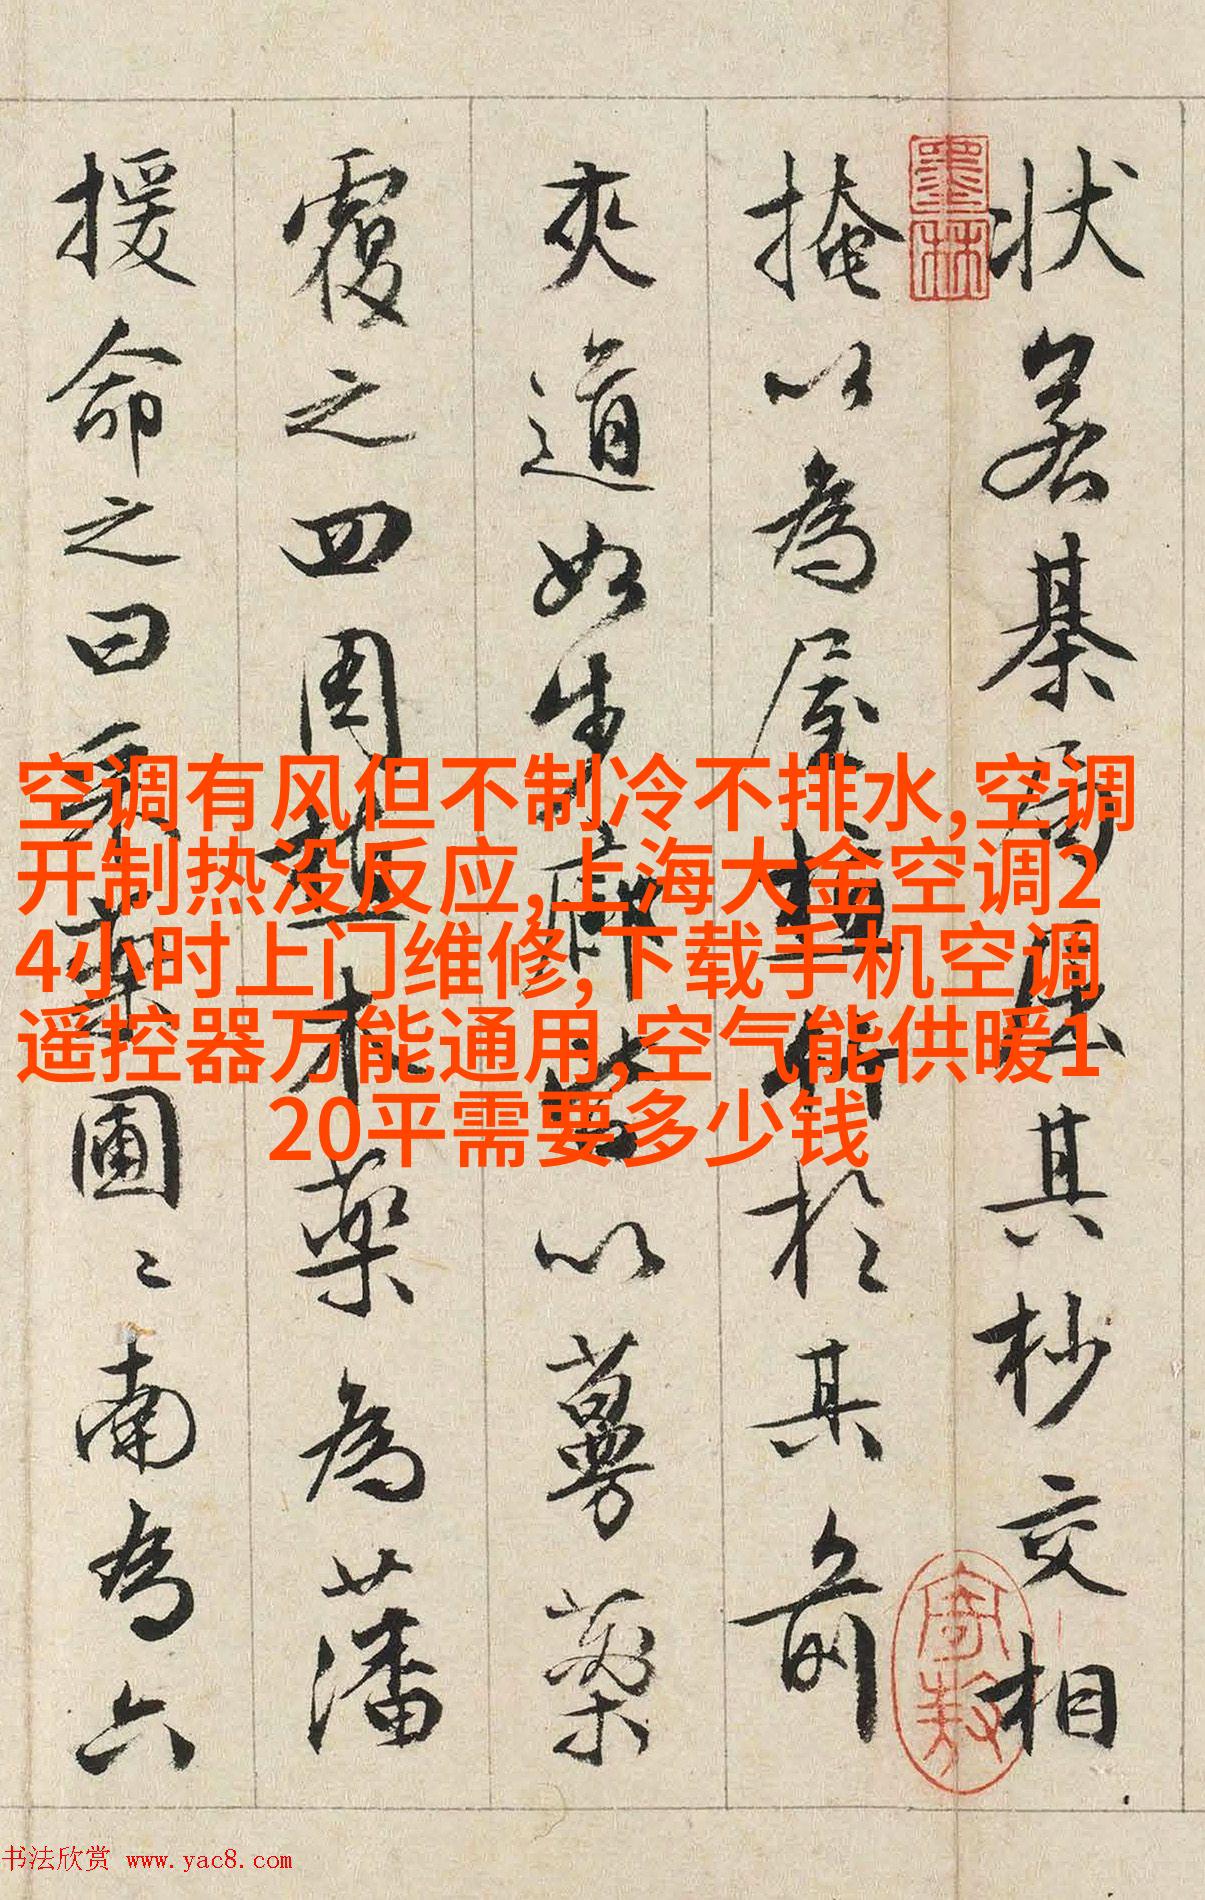 狀若棊局屈其杪交相
掩以為屋植竹於其前
夾道如步廊皆以蔓藥
覆之四周植木藥為藩
援命之曰采藥圃〻南為六
墨林
空调有风但不制冷不排水,空调
开制热没反应,上海大金空调2
4小时上门维修,下载手机空调
遥控器万能通用,空气能供暖1
20平需要多少钱
书法欣赏 www.yac8.com